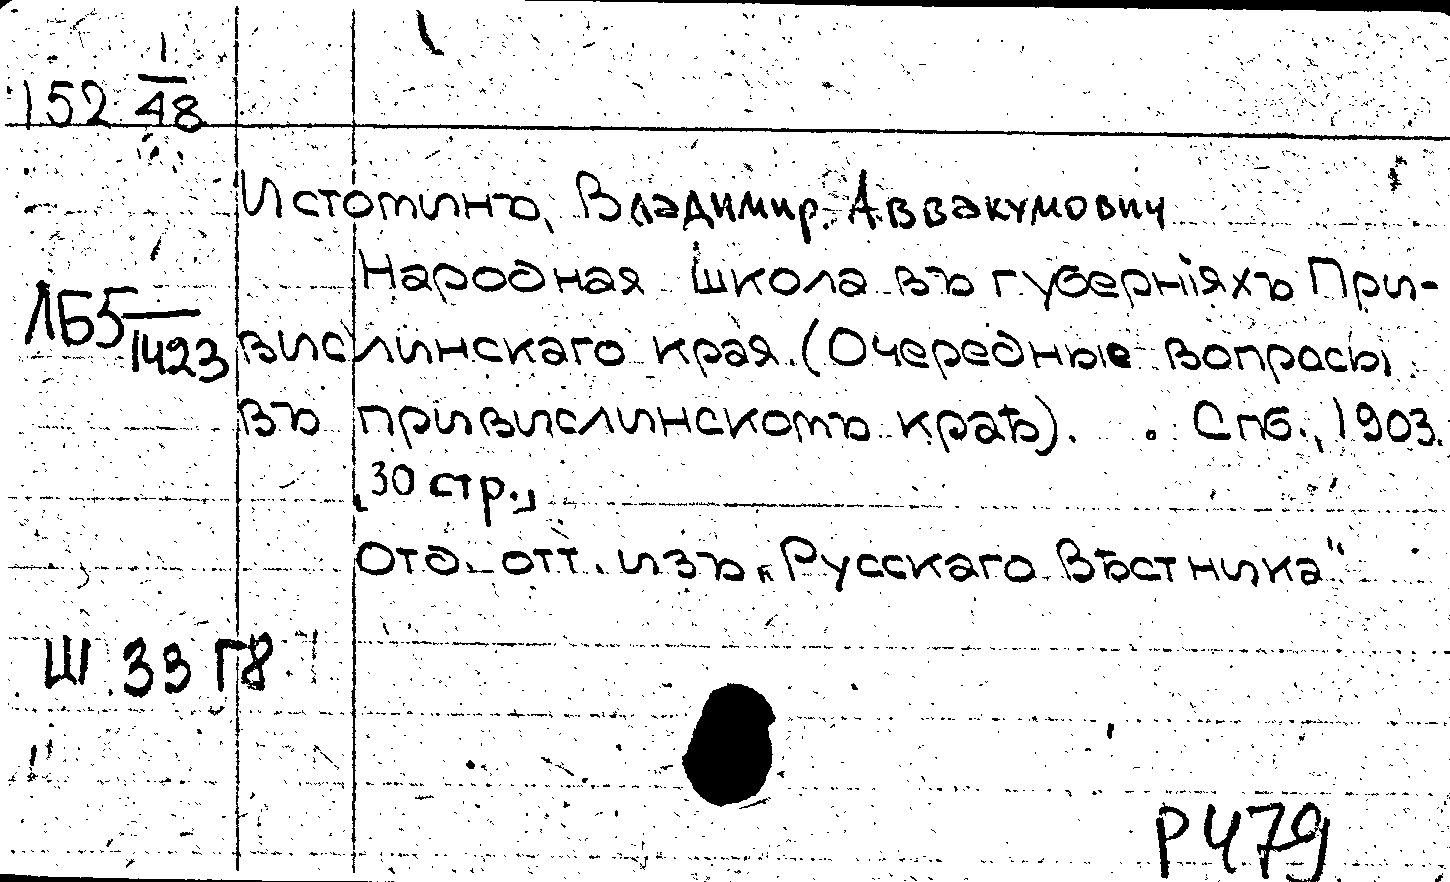 152 1/48
Истоминъ, Владимир Аввакумович
Народная школа въ губерніяхъ При-
ЛБ5/1423
вислинскаго края. (Очередные вопросы
въ привислинскомъ краѣ). . Спб., 1903.
[30 стр.]
Отд. отт. изъ „Русскаго Вѣстника"
Ш 33 Г8
Р479